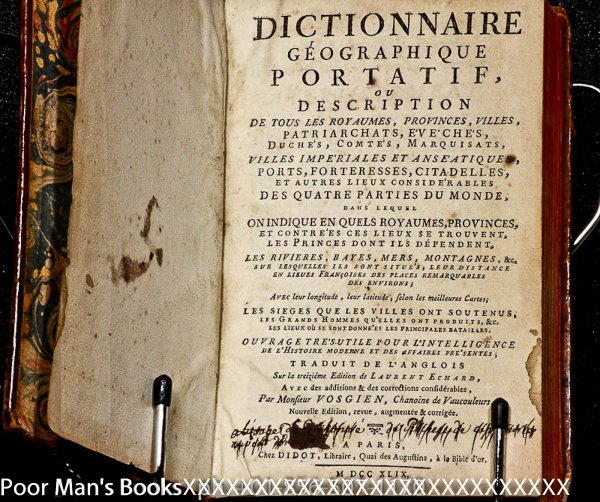 DICTIONNAIRE
GÉOGRAPHIQUE
PORTATIF,
OU
DESCRIPTION
DE TOUS LES ROYAUMES, PROVINCES, VILLES,
PATRIARCHATS, E'VE'CHE'S,
DUCHE'S, COMTE'S, MARQUISATS,
VILLES IMPE'RIALES ET ANSE'ATIQUES,
PORTS, FORTERESSES, CITADELLES,
ET AUTRES LIEUX CONSIDE'RABLES
DES QUATRE PARTIES DU MONDE,
DANS LEQUEL
ON INDIQUE EN QUELS ROYAUMES, PROVINCES,
ET CONTRE'ES CES LIEUX SE TROUVENT,
LES PRINCES DONT ILS DÉPENDENT,
LES RIVIERES, BAYES, MERS, MONTAGNES, &c.
SUR LESQUELLES ILS SONT SITUE'S, LEUR DISTANCE
EN LIEUES FRANÇOISES DES PLACES REMARQUABLES
DES ENVIRONS;
AVEC leur longitude, leur latitude, selon les meilleures Cartes;
LES SIEGES QUE LES VILLES ONT SOUTENUS,
LES GRANDS HOMMES QU'ELLES ONT PRODUITS, &c.
LES LIEUX OÙ SE SONT DONNE'ES LES PRINCIPALES BATAILLES.
OUVRAGE TRE'S-UTILE POUR L'INTELLIGENCE
DE L'HISTOIRE MODERNE ET DES AFFAIRES PRE'SENTES;
TRADUIT DE L'ANGLOIS
Sur la treiziéme Edition de LAURENT ECHARD,
AVEC des additions & des corrections considérables,
Par Monsieur VOSGIEN, Chanoine de Vaucouleurs
Nouvelle Edition, revue, augmentée & corrigée.
A PARIS,
Chez DIDOT, Libraire, Quai des Augustins, à la Bible d'or.
M DCC XLIX.
Poor Man's BooksXXXXXXXXXXXXXXXXXXXXXXXXXX